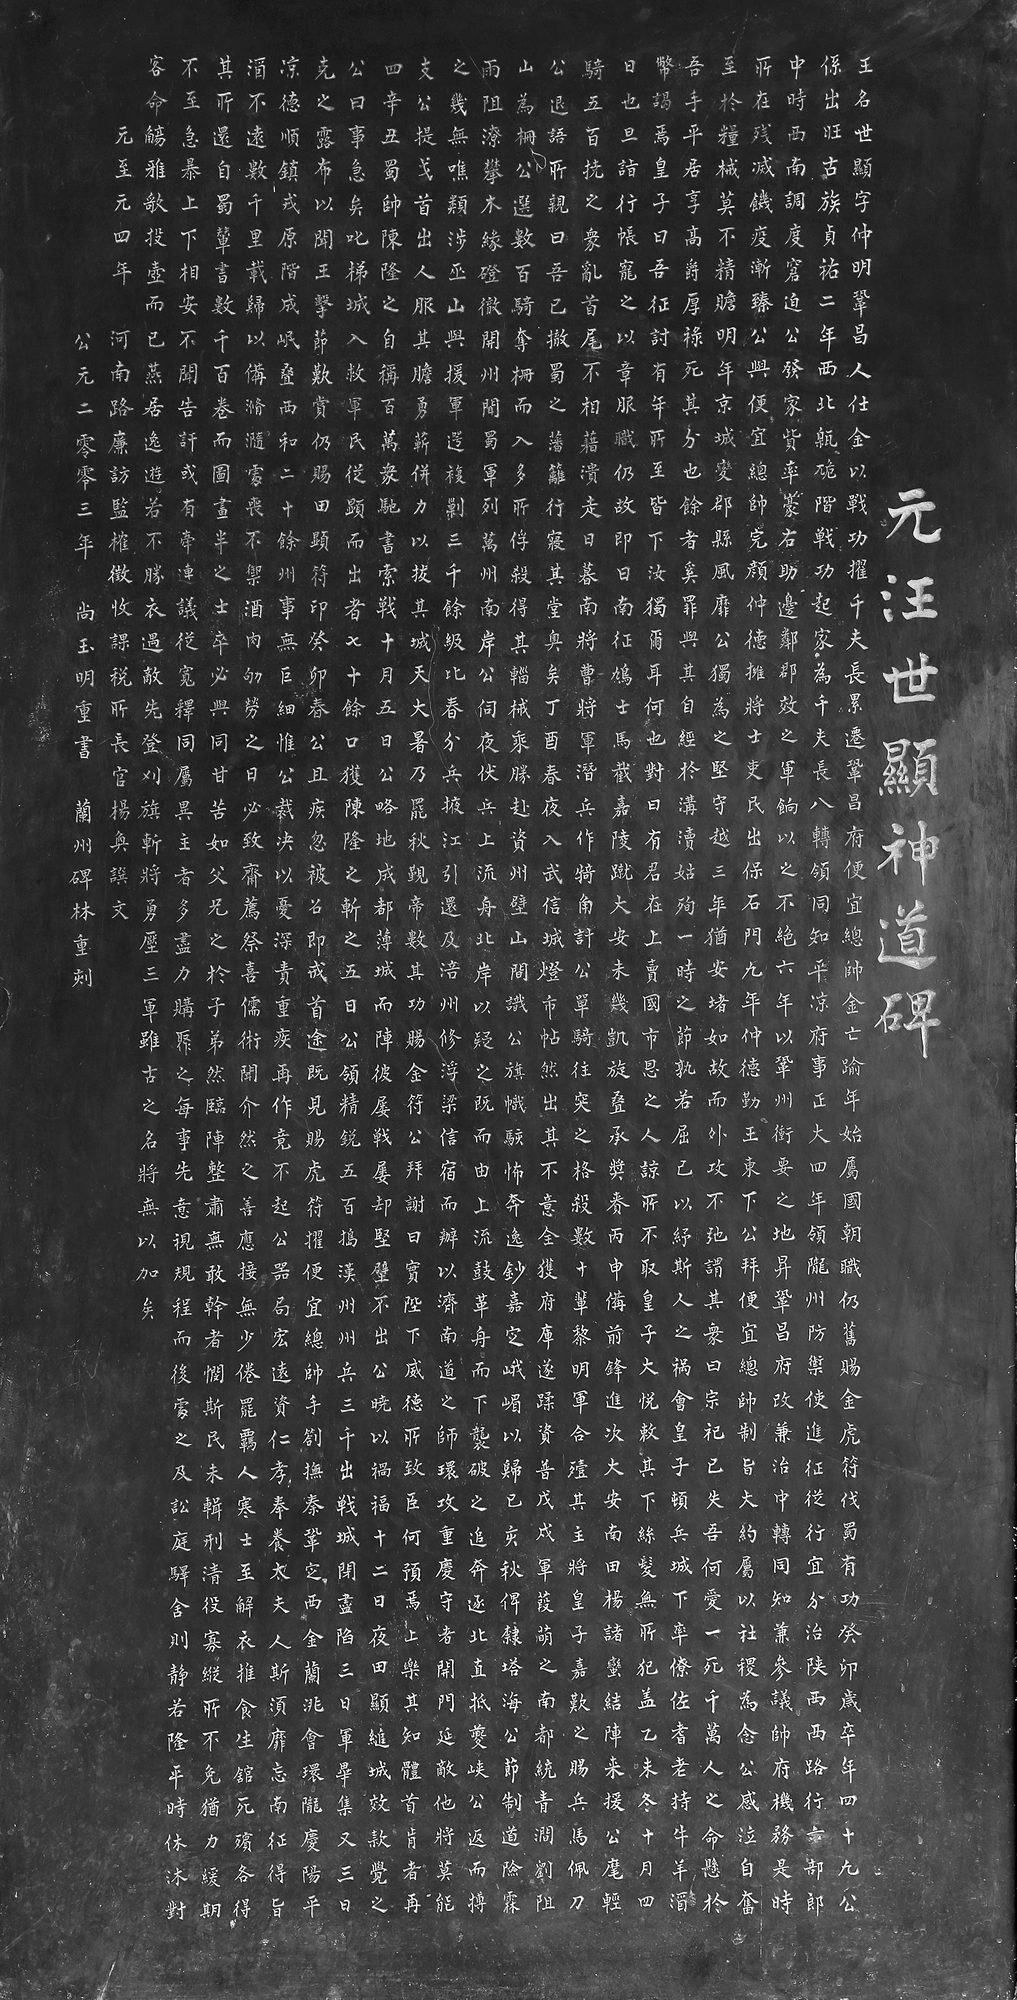 元汪世顯神道碑
王名世顯字仲明鞏昌人仕金以戰功擢千夫長累遷鞏昌府便宜總帥金亡踰年始屬國朝職仍舊賜金虎符伐蜀有功癸卯歲卒年四十九公
係出旺古族貞祐二年西北軏硊階戰功起家為千夫長八轉領同知平涼府事正大四年領隴州防禦使進征從行宜分治陝西西路行六部郎
中時西南調度窘迫公發家貲率豪右助邊鄰郡效之軍餉以之不絶六年以鞏州衝要之地昇鞏昌府改兼治中轉同知兼參議帥府機務是時
所在殘滅饑疫漸臻公與便宜總帥完顔仲德擁將士吏民出保石門九年仲德勤王東下公拜便宜總帥制旨大約屬以社稷為念公感泣自奮
至於糧械莫不精贍明年京城變郡縣風靡公獨為之堅守越三年猶安堵如故而外攻不弛謂其衆曰宗祀已失吾何愛一死千萬人之命懸於
吾手平居享高爵厚祿死其分也餘者奚罪與其自經於溝瀆姑殉一時之節孰若屈己以紓斯人之禍會皇子頓兵城下率僚佐耆老持牛羊酒
幣謁焉皇子曰吾征討有年所至皆下汝獨爾耳何也對曰有君在上賣國市恩之人諒所不取皇子大悅敕其下絲髮無所犯盖乙未冬十月四
日也旦詣行帳寵之以章服職仍故即日南征鳩士馬截嘉陵蹴大安未幾凱旋疊承獎眷丙申備前鋒進次大安南田楊諸蠻結陣来援公麾輕
騎五百撓之衆亂首尾不相藉潰走日暮南將曹將軍潛兵作犄角計公單騎往突之格殺數十輩黎明軍合殪其主將皇子嘉歎之賜兵馬佩刀
公退語所親曰吾已撤蜀之藩籬行寢其堂奥矣丁酉春夜入武信城燈市帖然出其不意全獲府庫遂蹂資普戊戌軍葭萌之南都統青澗劉阻
山為柵公選數百騎奪柵而入多所俘殺得其輜械乘勝赴資州壁山間識公旗幟駭怖奔逸鈔嘉定峨嵋以歸己亥秋俾隸塔海公節制道險霖
雨阻潦攀木緣磴徹開州間蜀軍列萬州南岸公伺夜伏兵上流舟北岸以疑之既而由上流鼓革舟而下襲破之追奔逐北直抵夔峽公返而摶
之幾無噍類涉巫山與援軍逕搜剿三千餘級比春分兵掖江引還及涪州修浮梁信宿而辦以濟南道之師環攻重慶守者開門延敵他將莫能
支公提戈首出人服其膽勇蔪併力以拔其城天大暑乃罷秋覲帝數其功賜金符公拜謝曰實陛下威德所致臣何預焉上樂其知體首肯者再
四辛丑蜀帥陳隆之自稱百萬衆馳書索戰十月五日公略地成都薄城而陣彼屡戰屡却堅壁不出公曉以禍福十二日夜田顯縋城效款覺之
公曰事急矣叱梯城入救軍民從顕而出者七十餘口獲陳隆之斬之五日公領精鋭五百搗漢州州兵三千出戰城閉盡陷三日軍畢集又三日
克之露布以聞王擊節歎賞仍賜田顕符印癸卯春公且疾忽被召即戒首途既見賜虎符擢便宜總帥手劄撫秦鞏定西金蘭洮會環隴慶陽平
涼德順鎮戎原階成岷疊西和二十餘州事無巨細惟公裁决以憂深責重疾再作竟不起公器局宏遠資仁孝奉養太夫人斯須靡忘南征得旨
酒不遠數千里載歸以備滫瀡處喪不禦酒肉劬勞之日必致齋薦祭喜儒術聞介然之善應接無少倦罷羁人寒士至解衣推食生舘死殯各得
其所還自蜀輦書數千百卷而圖畫半之士卒必與同甘苦如父兄之於子弟然臨陣整肅無敢幹者憫斯民未輯刑清役寡縱所不免猶力緩期
不至急暴上下相安不聞告訐或有牽連議從寬釋同屬異主者多盡力購聚之每事先意現規程而後處之及訟庭驛舍則静若隆平時休沐對
客命觴雅歌投壺而已燕居逸遊若不勝衣遇敵先登刈旗斬將勇壓三軍雖古之名將無以加矣
元至元四年 河南路廉訪監榷徵收課税所長官楊奐譔文
公元二零零三年 尚玉明重書 蘭州碑林重刻